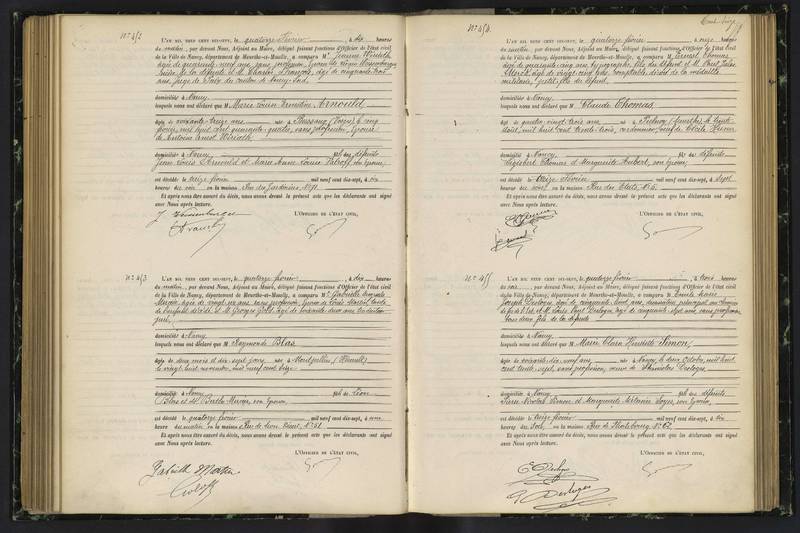 N° 452
L'an mil neuf cent dix-sept, le quatorze février, à dix heures
du matin, par devant Nous, Adjoint au Maire, délégué faisant fonctions d'Officier de l'état civil
de la Ville de Nancy, département de Meurthe-et-Moselle, a comparu M. Jeanne
âgée de quarante neuf ans, sans profession,
de la défunte et M. Charles François, âgé de cinquante trois
ans, juge de Paix du canton de Nancy Sud,
domiciliés à Nancy
lesquels nous ont déclaré que M. Marie Louise Ernestine Arnould
âgée de soixante treize ans, née à Bussang (Vosges) le cinq
février, mil huit cent quarante quatre, sans profession, épouse
de Antoine
domiciliée à Nancy, fille des défunts
Jean Louis Arnould et Marie Anne Louise son épouse,
est décédée le treize février mil neuf cent dix-sept, à dix
heures du soir en la maison Rue des Jardiniers, N° 91.
Et après nous être assuré du décès, nous avons dressé le présent acte que les déclarants ont signé
avec Nous après lecture.
L'Officier de l'état civil,
N° 453
L'an mil neuf cent dix-sept, le quatorze février, à dix heures
du matin, par devant Nous, Adjoint au Maire, délégué faisant fonctions d'Officier de l'état civil
de la Ville de Nancy, département de Meurthe-et-Moselle, a comparu M. Gabrielle
âgée de vingt six ans, sans profession,
et M. Georges âgé de soixante deux ans,
domiciliés à Nancy
lesquels nous ont déclaré que Raymonde Blas
âgée de deux mois et dix sept jours, née à Montpellier (Hérault)
le vingt huit novembre, mil neuf cent seize
domiciliée à Nancy, fille de Léon
Blas et de Berthe son épouse,
est décédée le quatorze février mil neuf cent dix-sept, à une
heure du matin en la maison Rue de
Et après nous être assuré du décès, nous avons dressé le présent acte que les déclarants ont signé
avec Nous après lecture.
L'Officier de l'état civil,
Gabrielle
N° 454
L'an mil neuf cent dix-sept, le quatorze février, à onze heures
du matin, par devant Nous, Adjoint au Maire, délégué faisant fonctions d'Officier de l'état civil
de la Ville de Nancy, département de Meurthe-et-Moselle, a comparu M. Ernest Thomas
âgé de quarante cinq ans, typographe, fils du défunt et M. Paul Jules
âgé de vingt cinq ans, comptable, décoré de la médaille
militaire, petit-fils du défunt,
domiciliés à Nancy
lesquels nous ont déclaré que M. Claude Thomas
âgé de quatre vingt trois ans, né à Pulnoy (Meurthe) le trente
Août, mil huit cent trente trois, cordonnier, veuf de Cécile
domicilié à Nancy, fils des défunts
Sigisbert Thomas et Marguerite Aubert, son épouse,
est décédé le treize février mil neuf cent dix-sept, à sept
heures du soir en la maison Rue des Etats, N° 6.
Et après nous être assuré du décès, nous avons dressé le présent acte que les déclarants ont signé
avec Nous après lecture.
L'Officier de l'état civil,
N° 455
L'an mil neuf cent dix-sept, le quatorze février, à trois heures
du soir, par devant Nous, Adjoint au Maire, délégué faisant fonctions d'Officier de l'état civil
de la Ville de Nancy, département de Meurthe-et-Moselle, a comparu M. Emile Marie
Joseph Desloges âgé de cinquante ans,
et M. Louis Paul Desloges, âgé de cinquante sept ans, sans profession,
tous deux fils de la défunte
domiciliés à Nancy
lesquels nous ont déclaré que M. Marie Claire Henriette Simon,
âgée de soixante dix neuf ans, née à Nancy, le deux Octobre, mil huit
cent trente sept, sans profession, veuve de Stanislas Desloges,
domiciliée à Nancy, fille des défunts
Pierre Nicolas Simon et Marguerite son épouse,
est décédée le treize février mil neuf cent dix-sept, à dix
heures du soir, en la maison Rue de Strasbourg, N° 62.
Et après nous être assuré du décès, nous avons dressé le présent acte que les déclarants ont signé
avec Nous après lecture.
L'Officier de l'état civil,
E. Desloges
P. Desloges